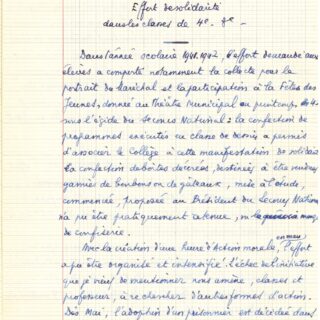 Effort de solidarité
dans les classes de 4e - 3e -
Dans l'année scolaire 1941-1942, l'effort demandé aux
élèves a comporté notamment la collecte pour le
portrait du Maréchal et la participation à la Fête des
Jeunes, donné au théâtre Municipal au printemps
sous l'égide du Secours National : la confection de
programmes exécutés en classe de dessin a permis
d'associer le Collège à cette manifestation de solidarité
La confection de boîtes décorées, destinées à être vendues
garnies de bonbons ou de gâteaux, mise à l'étude,
commencée, proposée au Président du Secours National
n'a pu être pratiquement retenue,
de confiserie.
en mai
Avec la création d'une heure d'Action morale, l'effort
a pu être organisé et intensifié. L'échec de l'initiative
que je viens de mentionner nous amène, classes et
professeur, à rechercher d'autres formes d'action.
Dès Mai, l'adoption d'un prisonnier est décidée dans